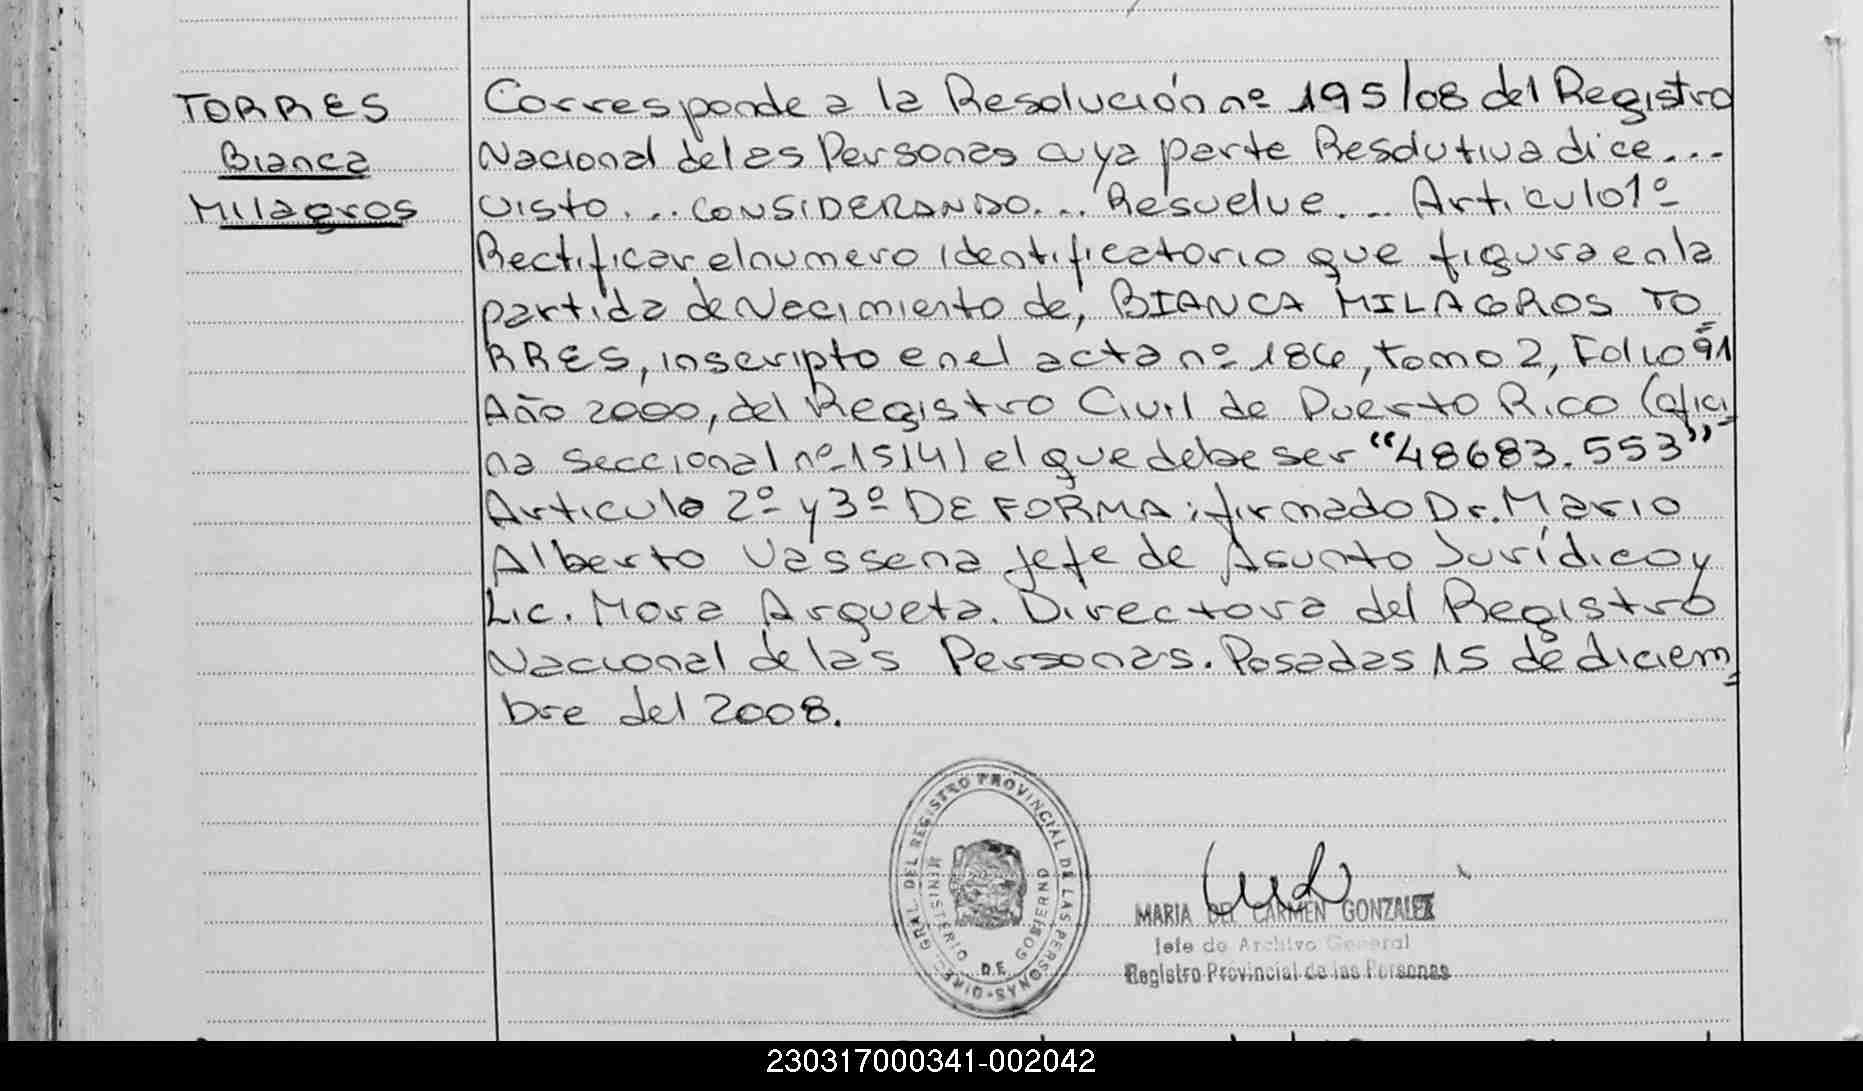 TORRES
Bianca
Milagros
Corresponde a la Resolución nº 195/08 del Registro
Nacional de las Personas cuya parte Resolutiva dice...
Visto... CONSIDERANDO... Resuelve... Articulo 1º
Rectificar el numero identificatorio que figura en la
partida de Nacimiento de, BIANCA MILAGROS TO=
RRES, inscripto en el acta nº 184, tomo 2, Folio 91
Año 2000, del Registro Civil de Puerto Rico (ofici
na seccional nº 1514) el que debe ser "48683.553"
Articulo 2º y 3º DE FORMA; firmado Dr. Mario
Alberto Vassena Jefe de Asunto Jurídico y
Lic. Mora Arqueta. Directora del Registro
Nacional de las Personas. Posadas 15 de diciem=
bre del 2008.
DIREC. GRAL. DEL REGISTRO PROVINCIAL DE LAS PERSONAS
MINISTERIO DE GOBIERNO
MARIA DEL CARMEN GONZALEZ
Jefe de Archivo General
Registro Provincial de las Personas
230317000341-002042